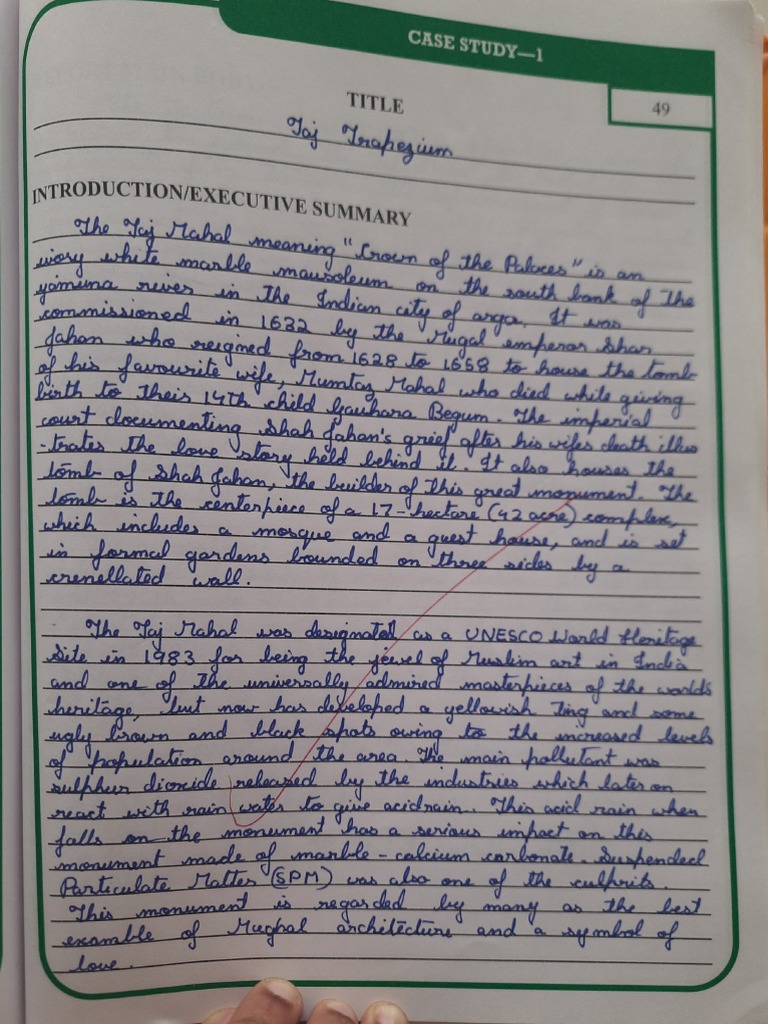 CASE STUDY—1
49
TITLE
Taj Trapezium
INTRODUCTION/EXECUTIVE SUMMARY
The Taj Mahal meaning "Crown of the Palaces" is an
ivory white marble mausoleum on the south bank of the
yamuna river in the Indian city of argra. It was
commissioned in 1632 by the Mugal emperor Shah
Jahan who reigned from 1628 to 1658 to house the tomb
of his favourite wife, Mumtaz Mahal who died while giving
birth to their 14th child Gauhara Begum. The imperial
court documenting Shah Jahan's grief after his wifes death illus
-trates the love story held behind it. It also houses the
tomb of Shah Jahan, the builder of this great monument. The
tomb is the centerpiece of a 17-hectare (42 acre) complex,
which includes a mosque and a guest house, and is set
in formal gardens bounded on three sides by a
crenellated wall.
The Taj Mahal was designated as a UNESCO World Heritage
Site in 1983 for being the jewel of Muslim art in India
and one of the universally admired masterpieces of the world's
heritage, but now has developed a yellowish Ting and some
ugly brown and black spots owing to the increased levels
of population around the area. The main pollutant was
sulphur dioxide released by the industries which later on
react with rain water to give acidrain. This acid rain when
falls on the monument has a serious impact on this
monument made of marble - calcium carbonate. Suspended
Particulate Matter (SPM) was also one of the culprits.
This monument is regarded by many as the best
examble of Mughal architecture and a symbol of
love.